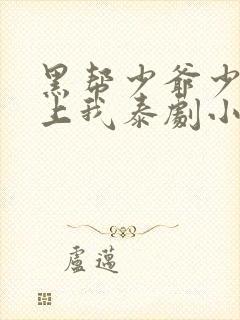 黑帮少爷少
上我泰劇小
盧邁